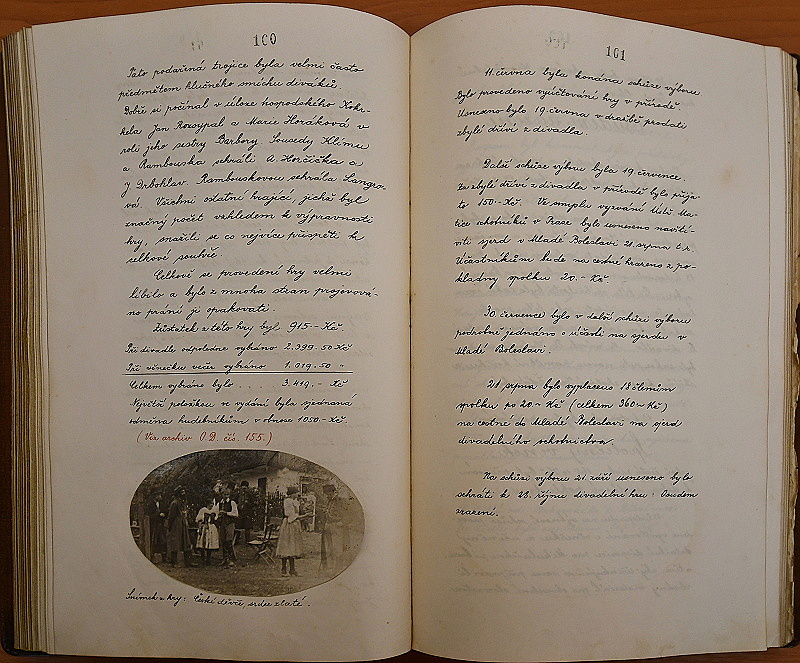 100
Tato podařená trojice byla velmi často
předmětem hlučného smíchu diváků.
Dobře si počínal v úloze hospodského Kokr-
hela Jan Rozsypal a Marie Horáková v
roli jeho sestry Barbory. Sousedy Klímu
a Rambouska sehráli A. Horčička a
J. Drbohlav. Rambouskovou sehrála Langro-
vá. Všichni ostatní hrající, jichž byl
značný počet vzhledem k výpravnosti
hry, snažili se co nejvíce přispěti k
celkové souhře.
Celkově se provedení hry velmi
líbilo a bylo z mnoha stran projevová-
no přání ji opakovati.
Zůstatek z této hry byl 915.- Kč.
Při divadle odpoledne vybráno 2.399.50 Kč
Při věnečku večer vybráno 1.019.50 "
Celkem vybráno bylo .... 3.419.- Kč
Největší položkou ve vydání byla sjednaná
odměna hudebníkům v obnose 1050.- Kč.
(Viz archiv O.D. čís. 155.)
Snímek z hry: České děvče, srdce zlaté.
101
11. června byla konána schůze výboru.
Bylo provedeno vyúčtování hry v přírodě.
Usneseno bylo 19. června v dražbě prodati
zbylé dříví z divadla.
Další schůze výboru byla 19. července.
Za zbylé dříví z divadla v přírodě bylo přija-
to 150.- Kč. Ve smyslu vyzvání Ústř. Ma-
tice ochotníků v Praze bylo usneseno navští-
viti sjezd v Mladé Boleslavi 21. srpna t.r.
Účastníkům bude na cestné hrazeno z po-
kladny spolku 20.- Kč.
30. července bylo v další schůzi výboru
podrobně jednáno o účasti na sjezdu v
Mladé Boleslavi.
21. srpna bylo vyplaceno 18 členům
spolku po 20.- Kč (celkem 360.- Kč)
na cestné do Mladé Boleslavi na sjezd
divadelního ochotnictva.
Na schůzi výboru 21. září usneseno bylo
sehráti k 28. říjnu divadelní hru: Osudem
zrazení.